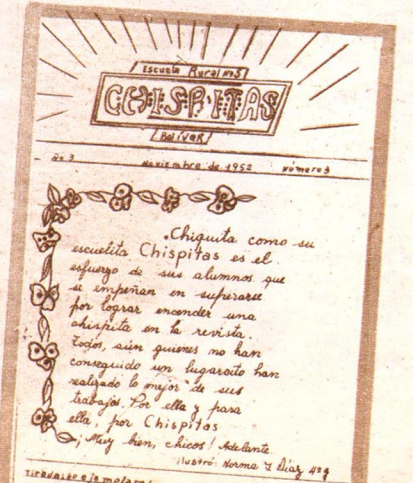 Escuela Rural nº5
CHISPITAS
BOLIVAR
Año 3 Noviembre de 1952 Número 3
Chiquita como su
escuelita Chispitas es el
esfuerzo de sus alumnos que
se empeñan en superarse
por lograr encender una
chispita en la revista.
Todos, aún quienes no han
conseguido un lugarcito han
realizado lo mejor de sus
trabajos. Por ella y para
ella, por Chispitas
¡Muy bien, chicos! Adelante
ilustró: Norma J. Díaz 4ºg